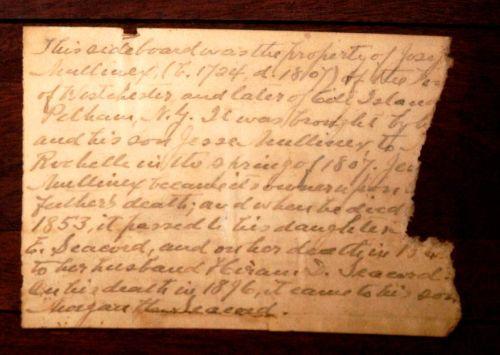 This sideboard was the property of Jose
Mullinex, (b. 1724, d. 1807) of the
of Westchester, and later of City Island
Pelham, N.Y. It was brought by
and his son Jesse Mullinex to
Rochelle in the spring of 1807. Jes
Mullinex became its owner upon
father's death; and when he died
1853, it passed to his daughter
E. Seacord, and on her death, in
to her husband Hiram D. Seacord.
On his death in 1896, it came to his son
Morgan H. Seacord.